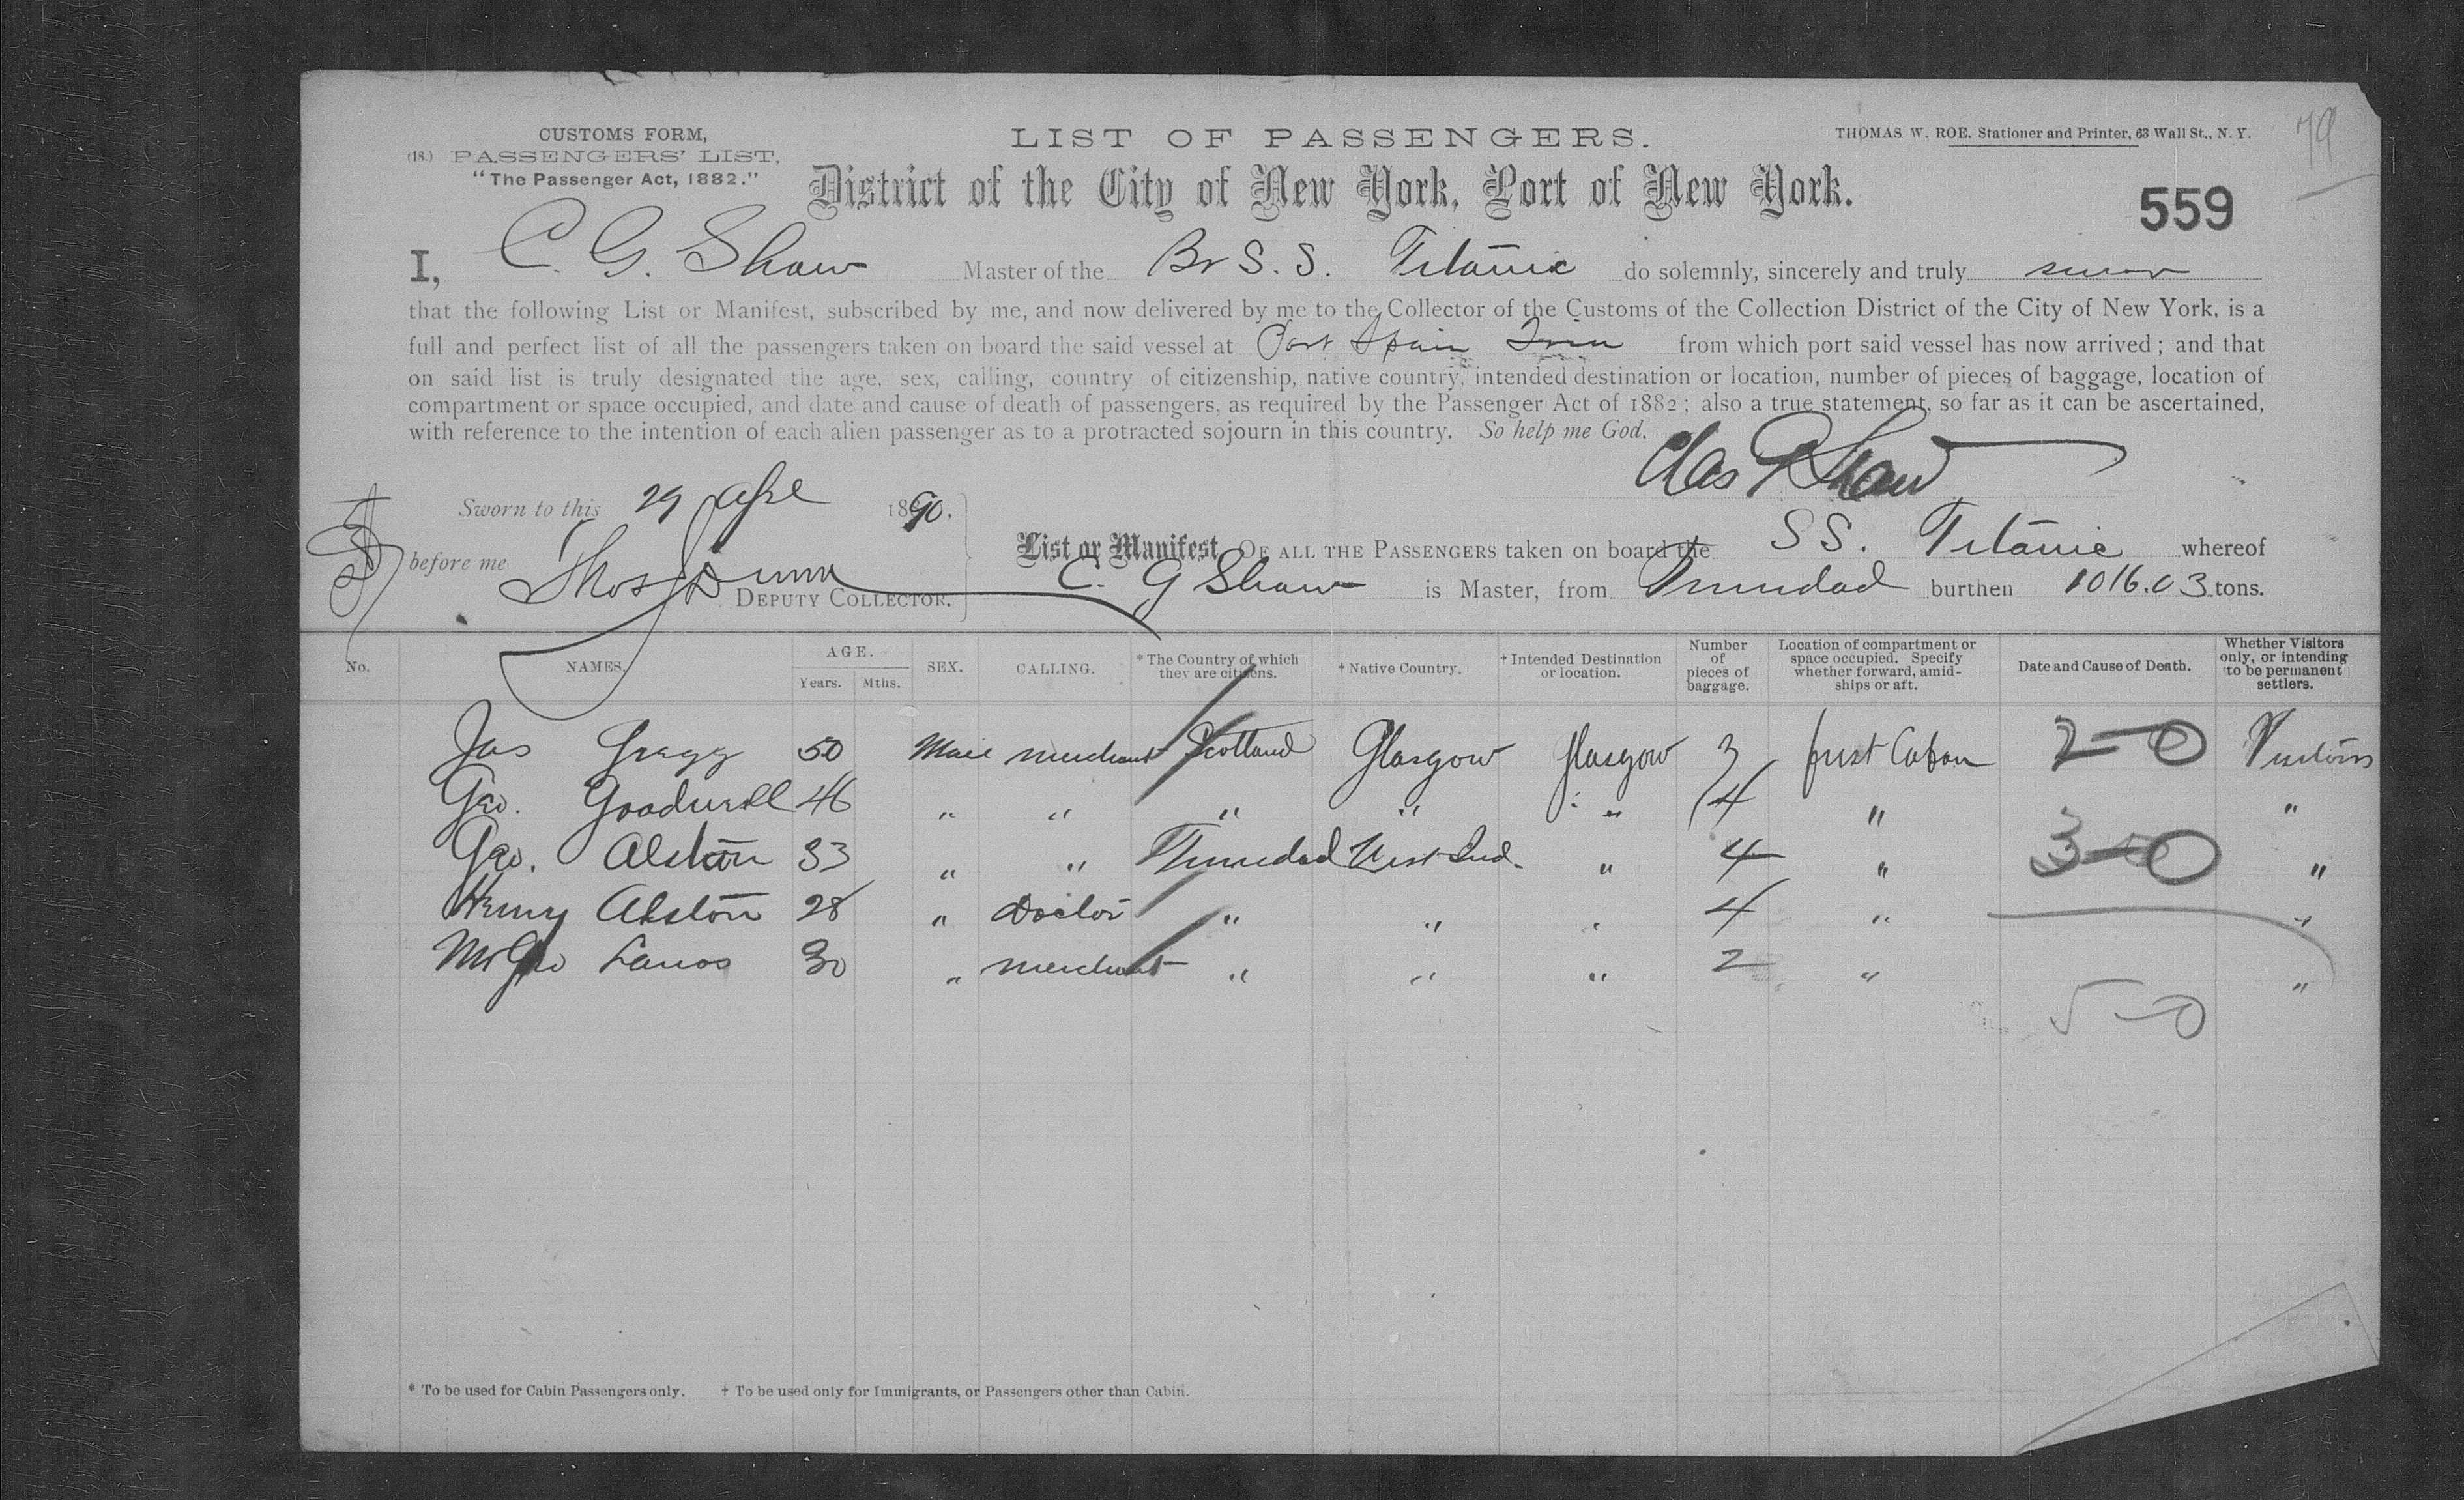 CUSTOMS FORM,
(18.) PASSENGERS' LIST.
"The Passenger Act, 1882."
LIST OF PASSENGERS.
THOMAS W. ROE, Stationer and Printer, 63 Wall St., N. Y.
79
District of the City of New York, Port of New York.
559
I, C. G. Shaw Master of the Br S. S. Titanic do solemnly, sincerely and truly swear
that the following List or Manifest, subscribed by me, and now delivered by me to the Collector of the Customs of the Collection District of the City of New York, is a
full and perfect list of all the passengers taken on board the said vessel at Port Spain Trin from which port said vessel has now arrived; and that
on said list is truly designated the age, sex, calling, country of citizenship, native country, intended destination or location, number of pieces of baggage, location of
compartment or space occupied, and date and cause of death of passengers, as required by the Passenger Act of 1882; also a true statement, so far as it can be ascertained,
with reference to the intention of each alien passenger as to a protracted sojourn in this country. So help me God.
Chas G Shaw
Sworn to this 29 Apl 1890.
before me Thos Dunn
DEPUTY COLLECTOR.
List or Manifest, OF ALL THE PASSENGERS taken on board the SS. Titanic whereof
C. G Shaw is Master, from Trinidad burthen 1016.03 tons.
No. NAMES. AGE. Years. Mths. SEX. CALLING. * The Country of which they are citizens. † Native Country. † Intended Destination or location. Number of pieces of baggage. Location of compartment or space occupied. Specify whether forward, amidships or aft. Date and Cause of Death. Whether Visitors only, or intending to be permanent settlers.
Jas Gregg 50 Male merchant Scotland Glasgow Glasgow 3 first Cabin 2-0 Visitors
Geo. Goodwill 46 " " " " " 4 " "
Geo. Alston 33 " " Trinidad West Ind. " 4 " 3-0 "
Henry Alston 28 " Doctor " " " 4 " "
Mr Geo 30 " merchant " " " 2 " "
5-0
* To be used for Cabin Passengers only. † To be used only for Immigrants, or Passengers other than Cabin.